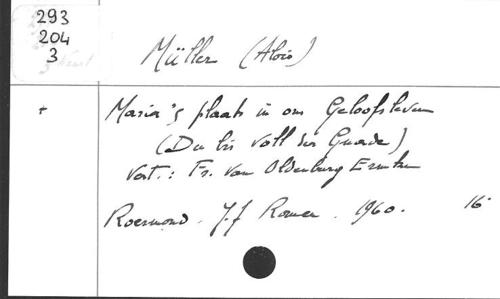 293
204
3
Müller (Alois)
+ Maria's plaats in ons Geloofsleven
(Du bis voll der Gnade)
Vert.: Fr. Van Oldenburg Ermke
Roermond. J.J Romen. 1960. 16°